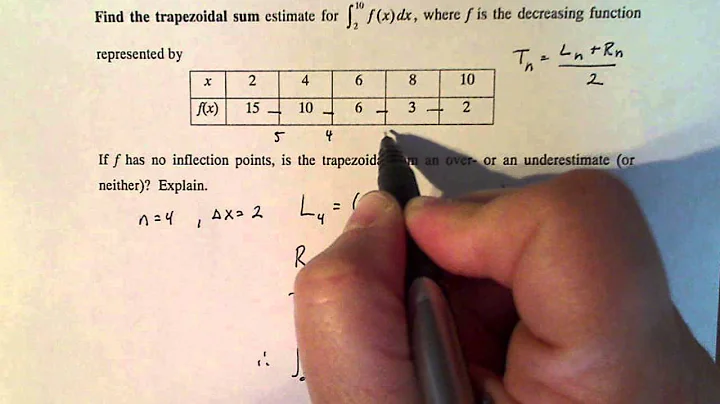 Find the trapezoidal sum estimate for ∫₂¹⁰ f(x)dx, where f is the decreasing function
represented by
Tₙ = (Lₙ + Rₙ)/2
x 2 4 6 8 10
f(x) 15 10 6 3 2
5 4
If f has no inflection points, is the an over- or an underestimate (or
neither)? Explain.
n=4 , Δx=2 L₄ = (
R
∴ ∫